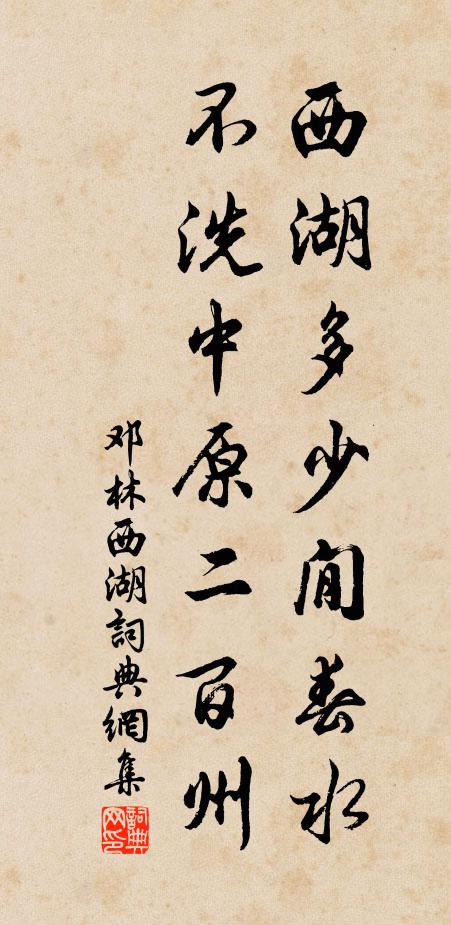 西湖多少閒春水
不洗中原二百州
邓林西湖詞典網集
詞典网印